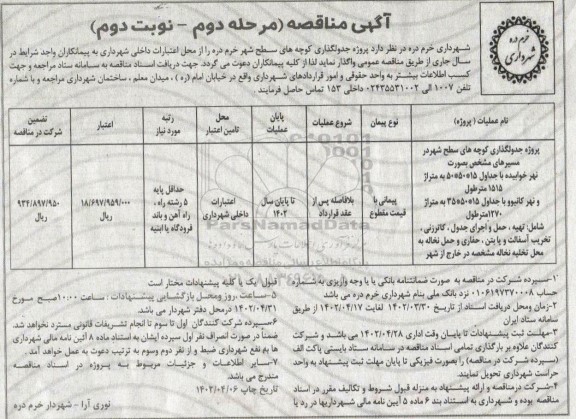 آگهی مناقصه (مرحله دوم – نوبت دوم)
خرم دره
شهرداری
شهرداری خرم دره در نظر دارد پروژه جدولگذاری کوچه های سطح شهر خرم دره را از محل اعتبارات داخلی شهرداری به پیمانکاران واجد شرایط در
سال جاری از طریق مناقصه عمومی واگذار نماید لذا از کلیه پیمانکاران دعوت می گردد، جهت دریافت اسناد مناقصه به سامانه ستاد مراجعه و جهت
کسب اطلاعات بیشتر به واحد حقوقی و امور قراردادهای شهرداری واقع در خیابان امام (ره) ، میدان معلم ، ساختمان شهرداری مراجعه و با شماره
تلفن ۱۰۰۷ الی ۰۲۴۳۵۵۳۱۰۰۲ داخلی ۱۵۳ تماس حاصل فرمایند.
نام عملیات (پروژه)
نوع پیمان
شروع عملیات
پایان عملیات
محل تامین اعتبار
رتبه مورد نیاز
اعتبار
تضمین شرکت در مناقصه
پروژه جدولگذاری کوچه های سطح شهر در
مسیرهای مشخص بصورت
نهر خوابیده با جداول ۱۵*۵۰*۵۰ به متراژ
۱۵۱۵ مترطول
و نهر کانیوو با جداول ۱۵*۵۰*۳۵ به متراژ
۱۲۷۰ مترطول
شامل: تهیه ، حمل و اجرای جدول ، کانرزنی ،
تخریب آسفالت و یا بتن ، حفاری و حمل نخاله به
محل تخلیه نخاله مشخصه در خارج از شهر
پیمانی با قیمت مقطوع
بلافاصله پس از عقد قرارداد
تا پایان سال ۱۴۰۲
اعتبارات داخلی شهرداری
حداقل پایه ۵ رشته راه ، راه آهن و باند فرودگاه یا ابنیه
۱۸/۶۹۷/۹۵۹/۰۰۰ ریال
۹۳۴/۸۹۷/۹۵۰ ریال
ParsNamadData
۱–سپرده شرکت در مناقصه به صورت ضمانتنامه بانکی یا یا وجه واریزی به شماره
حساب ۰۱۰۶۱۹۷۳۷۰۰۰۸ نزد بانک ملی بنام شهرداری خرم دره می باشد
۲–زمان ومحل دریافت اسناد از تاریخ ۱۴۰۲/۰۳/۳۰ لغایت ۱۴۰۲/۰۴/۱۷ از طریق
سامانه ستاد ایران
۳–مهلت ثبت پیشنهادات تا پایان وقت اداری ۱۴۰۲/۰۴/۲۸ می باشد و شرکت
کنندگان علاوه بر بارگذاری تمامی اسناد مناقصه در سامانه ستاد بایستی پاکت الف
(سپرده شرکت در مناقصه) را بصورت فیزیکی تا پایان مهلت ثبت پیشنهاد به واحد
حراست شهرداری تحویل نمایند.
۴–شرکت درمناقصه و ارائه پیشنهاد به منزله قبول شروط و تکالیف مقرر در اسناد
مناقصه بوده و شهرداری به استناد بند ۶ ماده ۵ آیین نامه مالی شهرداریها در رد یا
قبول یک یا کلیه پیشنهادات مختار است
۵–ساعت ،روز ومحل بازگشایی پیشنهادات : ساعت ۱۰:۰۰ صبح مورخ
۱۴۰۲/۰۴/۳۱ درمحل دفتر شهردار می باشد.
۶–سپرده شرکت کنندگان اول تا سوم تا انجام تشریفات قانونی مسترد نخواهد شد.
ضمناً در صورت انصراف نفر اول سپرده ایشان به استناد ماده ۸ آئین نامه مالی شهرداری
ها به نفع شهرداری ضبط و از نفر دوم وسوم به ترتیب دعوت به عمل خواهد آمد.
۷–سایر اطلاعات و جزئیات مربوط به پروژه در اسناد مناقصه
مندرج می باشد.
تاریخ چاپ ۱۴۰۲/۰۴/۰۶
نوری آرا – شهردار خرم دره